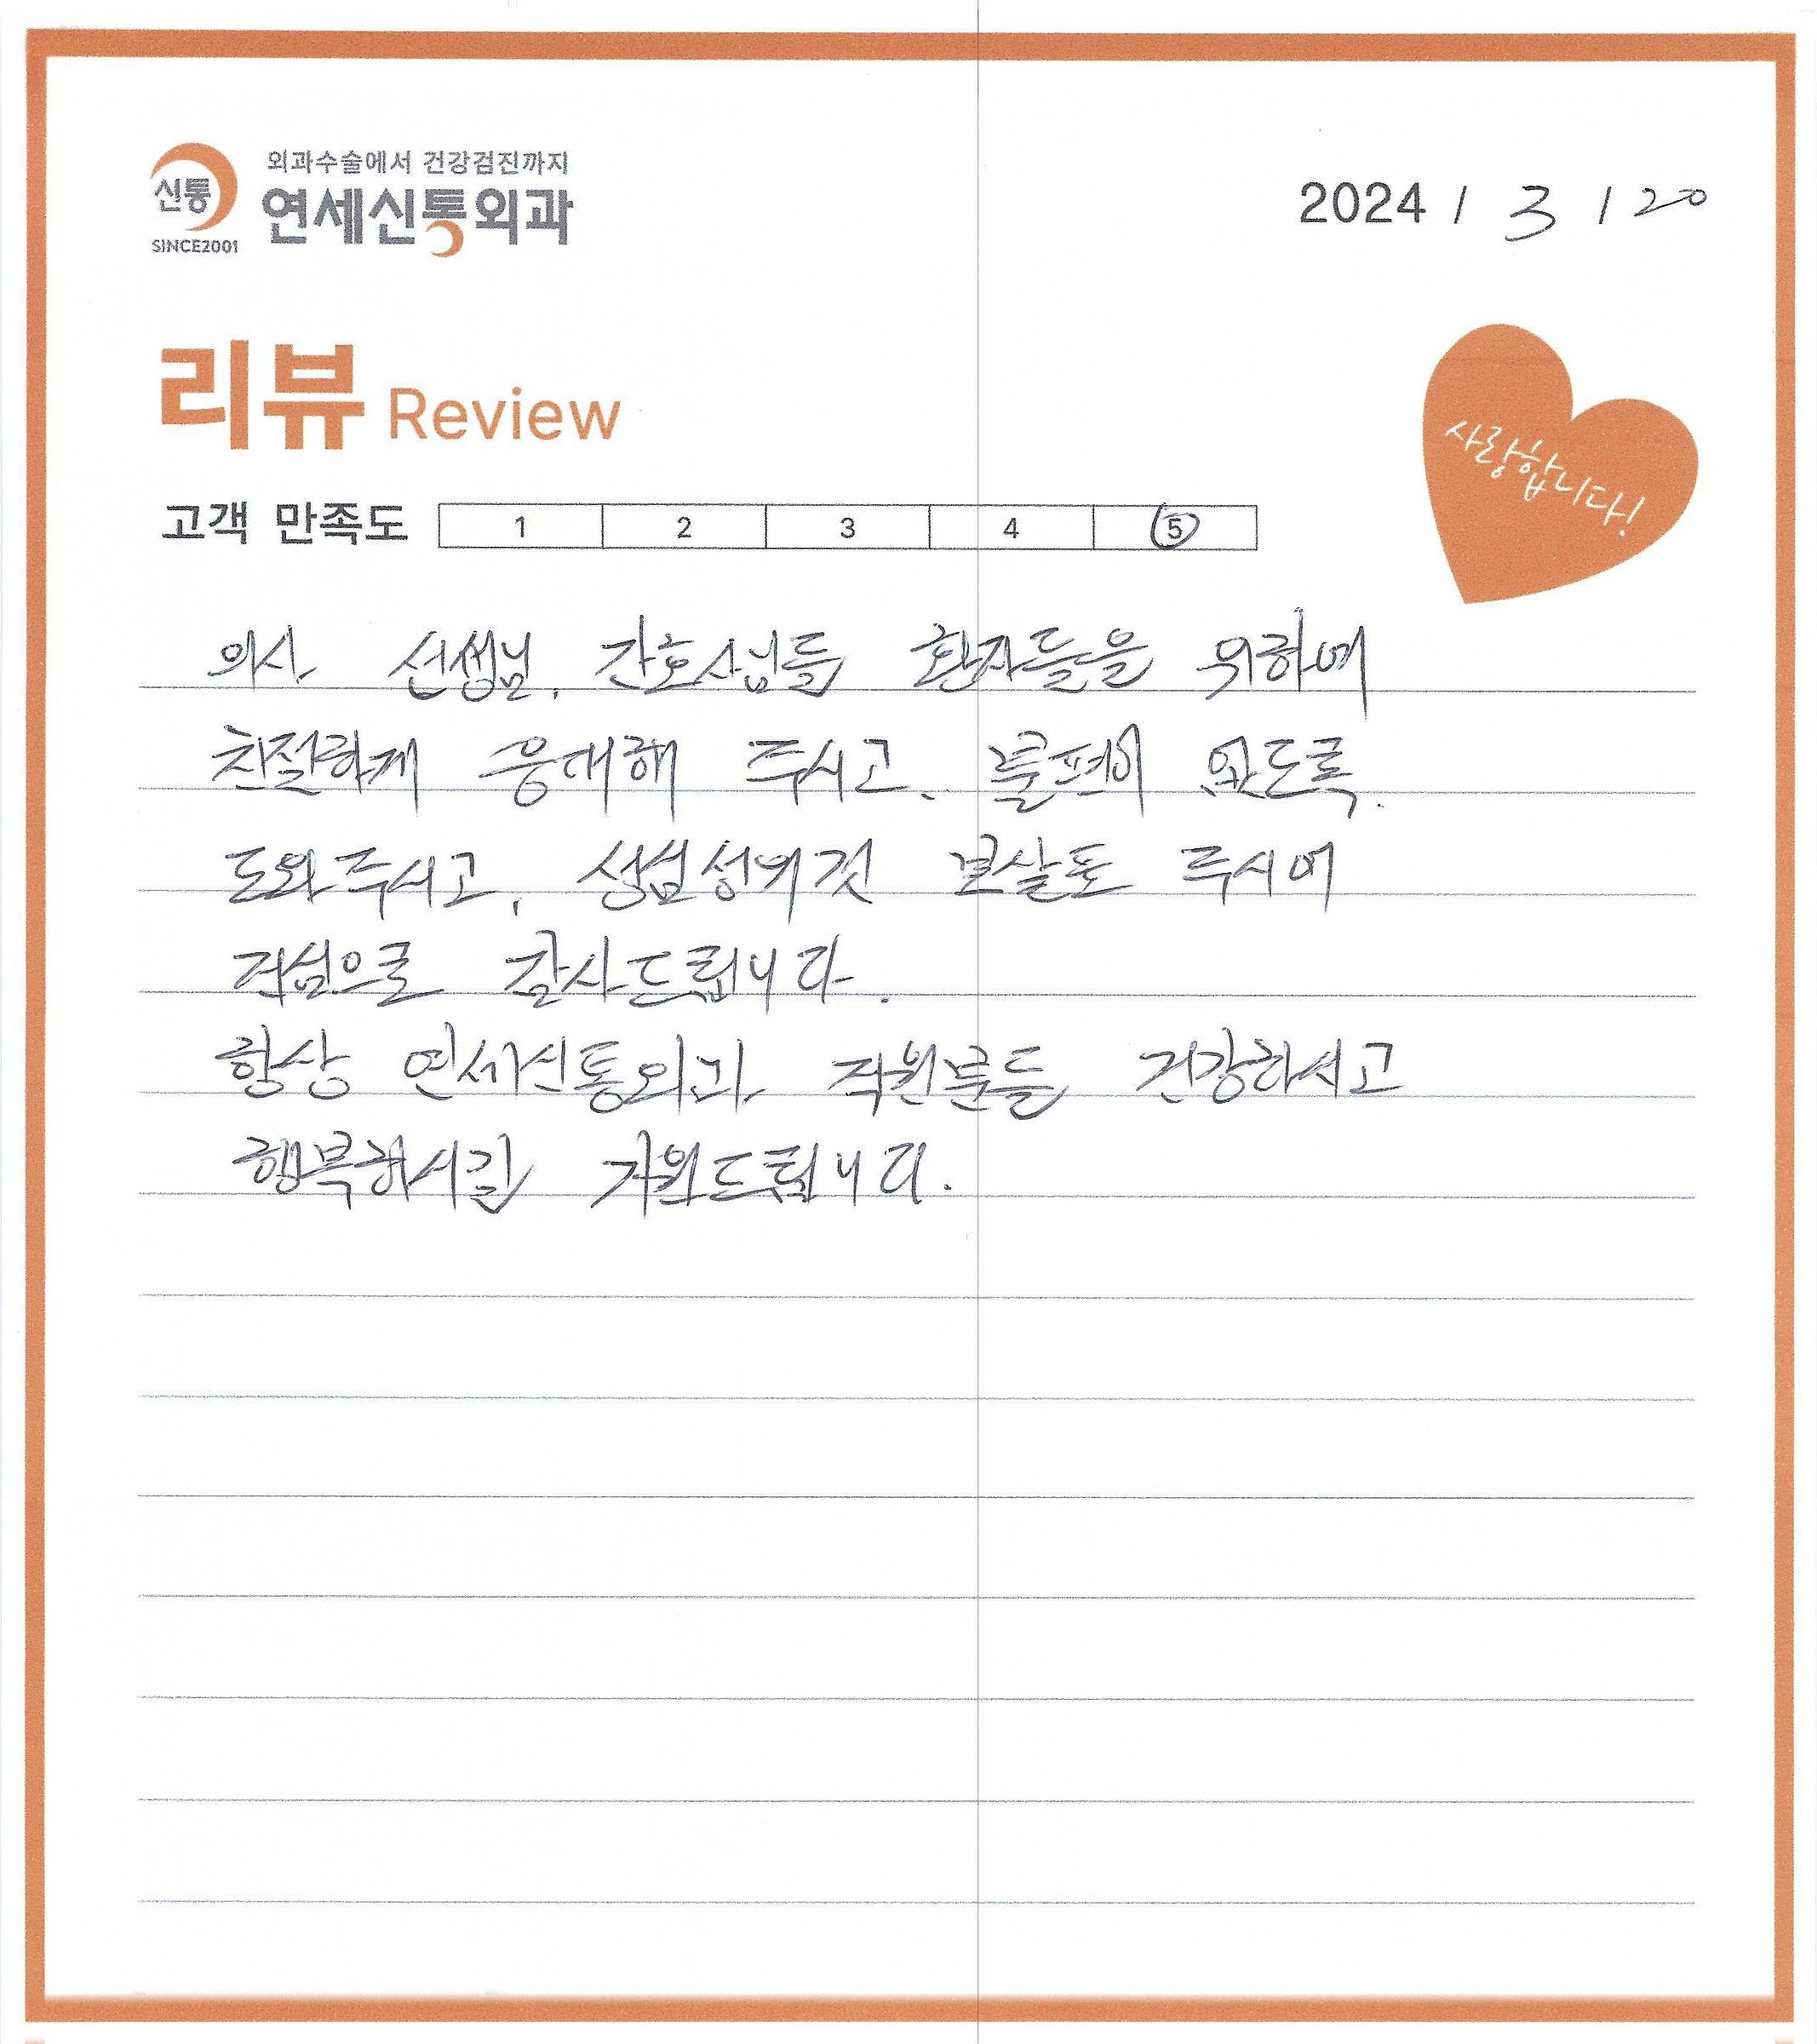 외과수술에서 건강검진까지
신통
연세신통외과
SINCE2001
2024 / 3 / 20
리뷰 Review
사랑합니다!
고객 만족도 1 2 3 4 5
의사 선생님, 간호사님들 환자들을 위하여
친절하게 응대해 주시고, 불편이 없도록.
도와주시고, 성심성의것 보살포 주시어
진심으로 감사드립니다.
항상 연세신통외과 직원분들 건강하시고
행복하시길 기원드립니다.